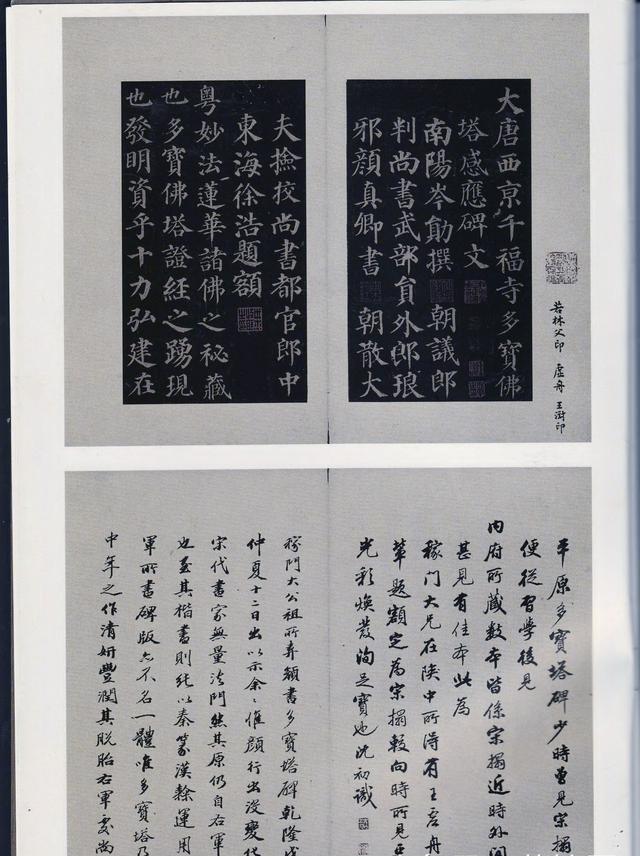 大唐西京千福寺多寶佛
塔感應碑文
南陽岑勛撰 朝議郎
判尚書武部員外郎琅
邪顏真卿書 朝散大
夫撿挍尚書都官郎中
東海徐浩題額
粵妙法蓮華諸佛之秘藏
也多寶佛塔證經之踴現
也發明資乎十力弘建在
若林父印 虛舟 王澍印
平原多寶塔碑少時曾見宗搨
便從習學後見
內府所藏數本皆係宗搨近時外間
甚見有佳本此為
稼門大兄在陝中所得有王虛舟
輩題額定為宗搨較向時所見
光彩煥發洵足寶也沈初識
稼門大公祖所弆顏書多寶塔碑乾隆
仲夏十二日出以示余惟顏行出沒變化
宋代書家無量法門然其原仍自右軍
也至其楷書則純以秦篆漢隸運用
軍所書碑版亦不名一體唯多寶塔乃
中年之作清妍豐潤其脫胎右軍處尚